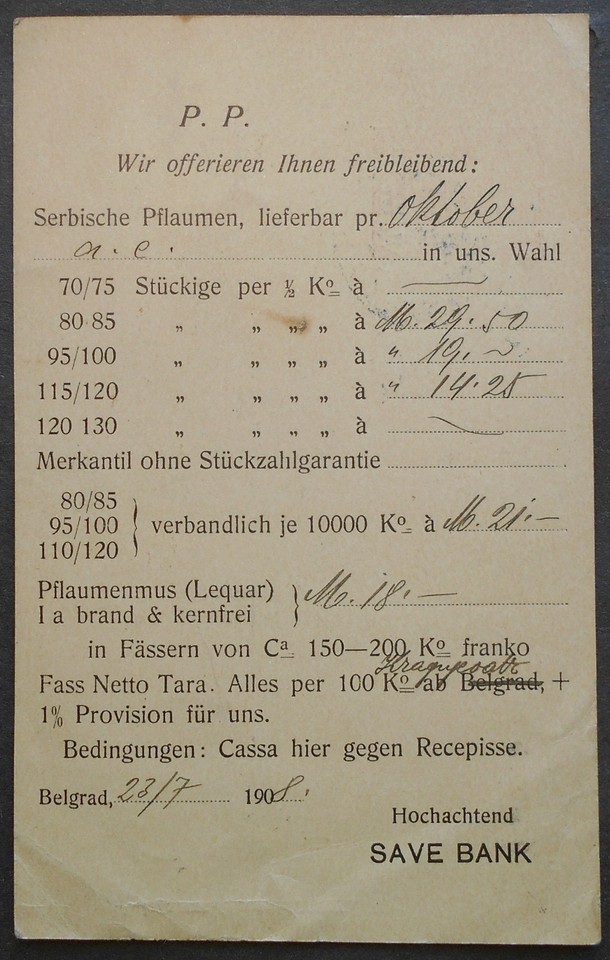 P. P.
Wir offerieren Ihnen freibleibend:
Serbische Pflaumen, lieferbar pr. Oktober
a. c. in uns. Wahl
70/75 Stückige per ½ Ko à —
80 85 „ „ „ „ à M. 29.50
95/100 „ „ „ „ à " 19.~
115/120 „ „ „ „ à " 14.25
120 130 „ „ „ „ à —
Merkantil ohne Stückzahlgarantie
80/85
95/100 } verbandlich je 10000 Ko à M. 21.—
110/120
Pflaumenmus (Lequar) } M. 18.—
I a brand & kernfrei
in Fässern von Ca 150—200 Ko franko
Fass Netto Tara. Alles per 100 Ko ab Belgrad, +
1% Provision für uns.
Bedingungen: Cassa hier gegen Recepisse.
Belgrad, 23/7 1908.
Hochachtend
SAVE BANK